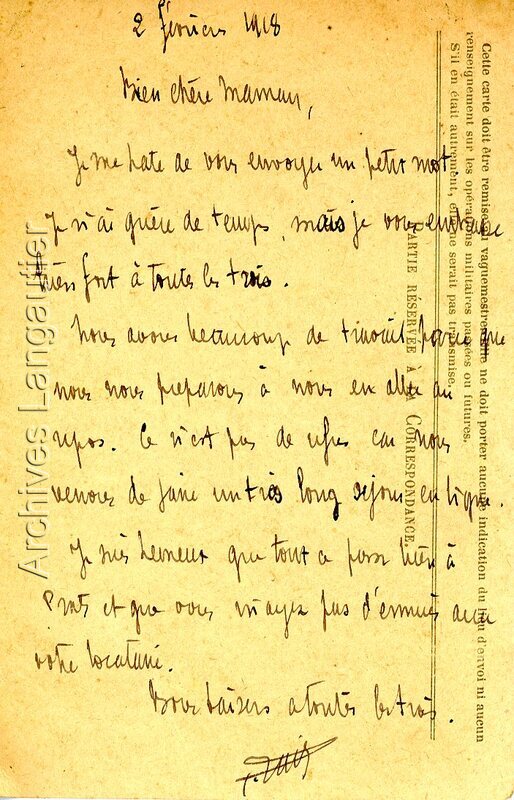 2 février 1918
Bien chère Maman,
Je me hate de vous envoyer un petit mot.
Je n'ai guère de temps, mais je vous embrasse
bien fort à toutes les trois.
Nous avons beaucoup de travail parce que
nous nous preparons à nous en aller au
repos. Ce n'est pas de refus car nous
venons de faire un très long sejour en ligne.
Je suis heureux que tout ce passe bien à
Prats et que vous n'ayez pas d'ennuis avec
votre locataire.
Bons baisers a toutes les trois.
Cette carte doit être remise au vaguemestre. Elle ne doit porter aucune indication du lieu d'envoi ni aucun
renseignement sur les opérations militaires passées ou futures.
S'il en était autrement, elle ne serait pas transmise.
PARTIE RÉSERVÉE A LA CORRESPONDANCE.
Archives Langautier